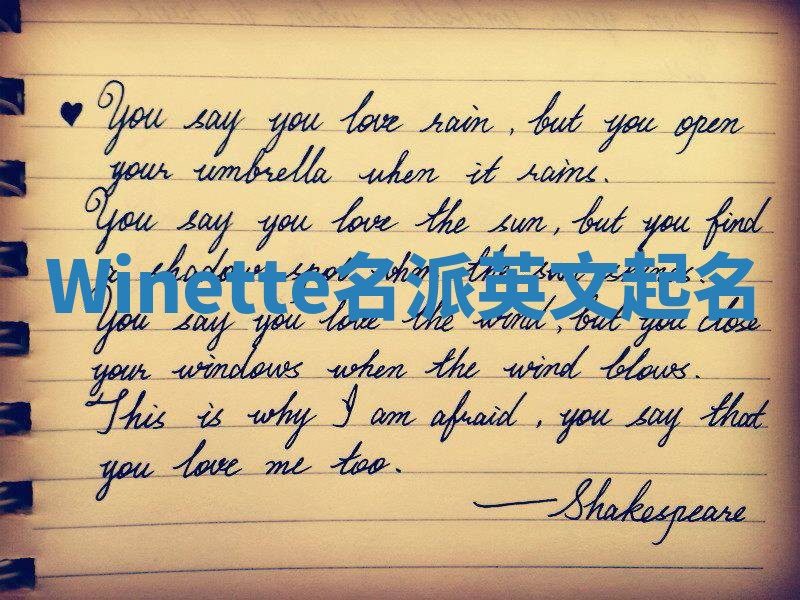 ♥ You say you love rain, but you open
your umbrella when it rains.
You say you love the sun, but you find
a shadow spot when the sun shines.
Winette名派英文起名
You say you love the wind, but you close
your windows when the wind blows.
This is why I am afraid, you say that
you love me too.
—Shakespeare